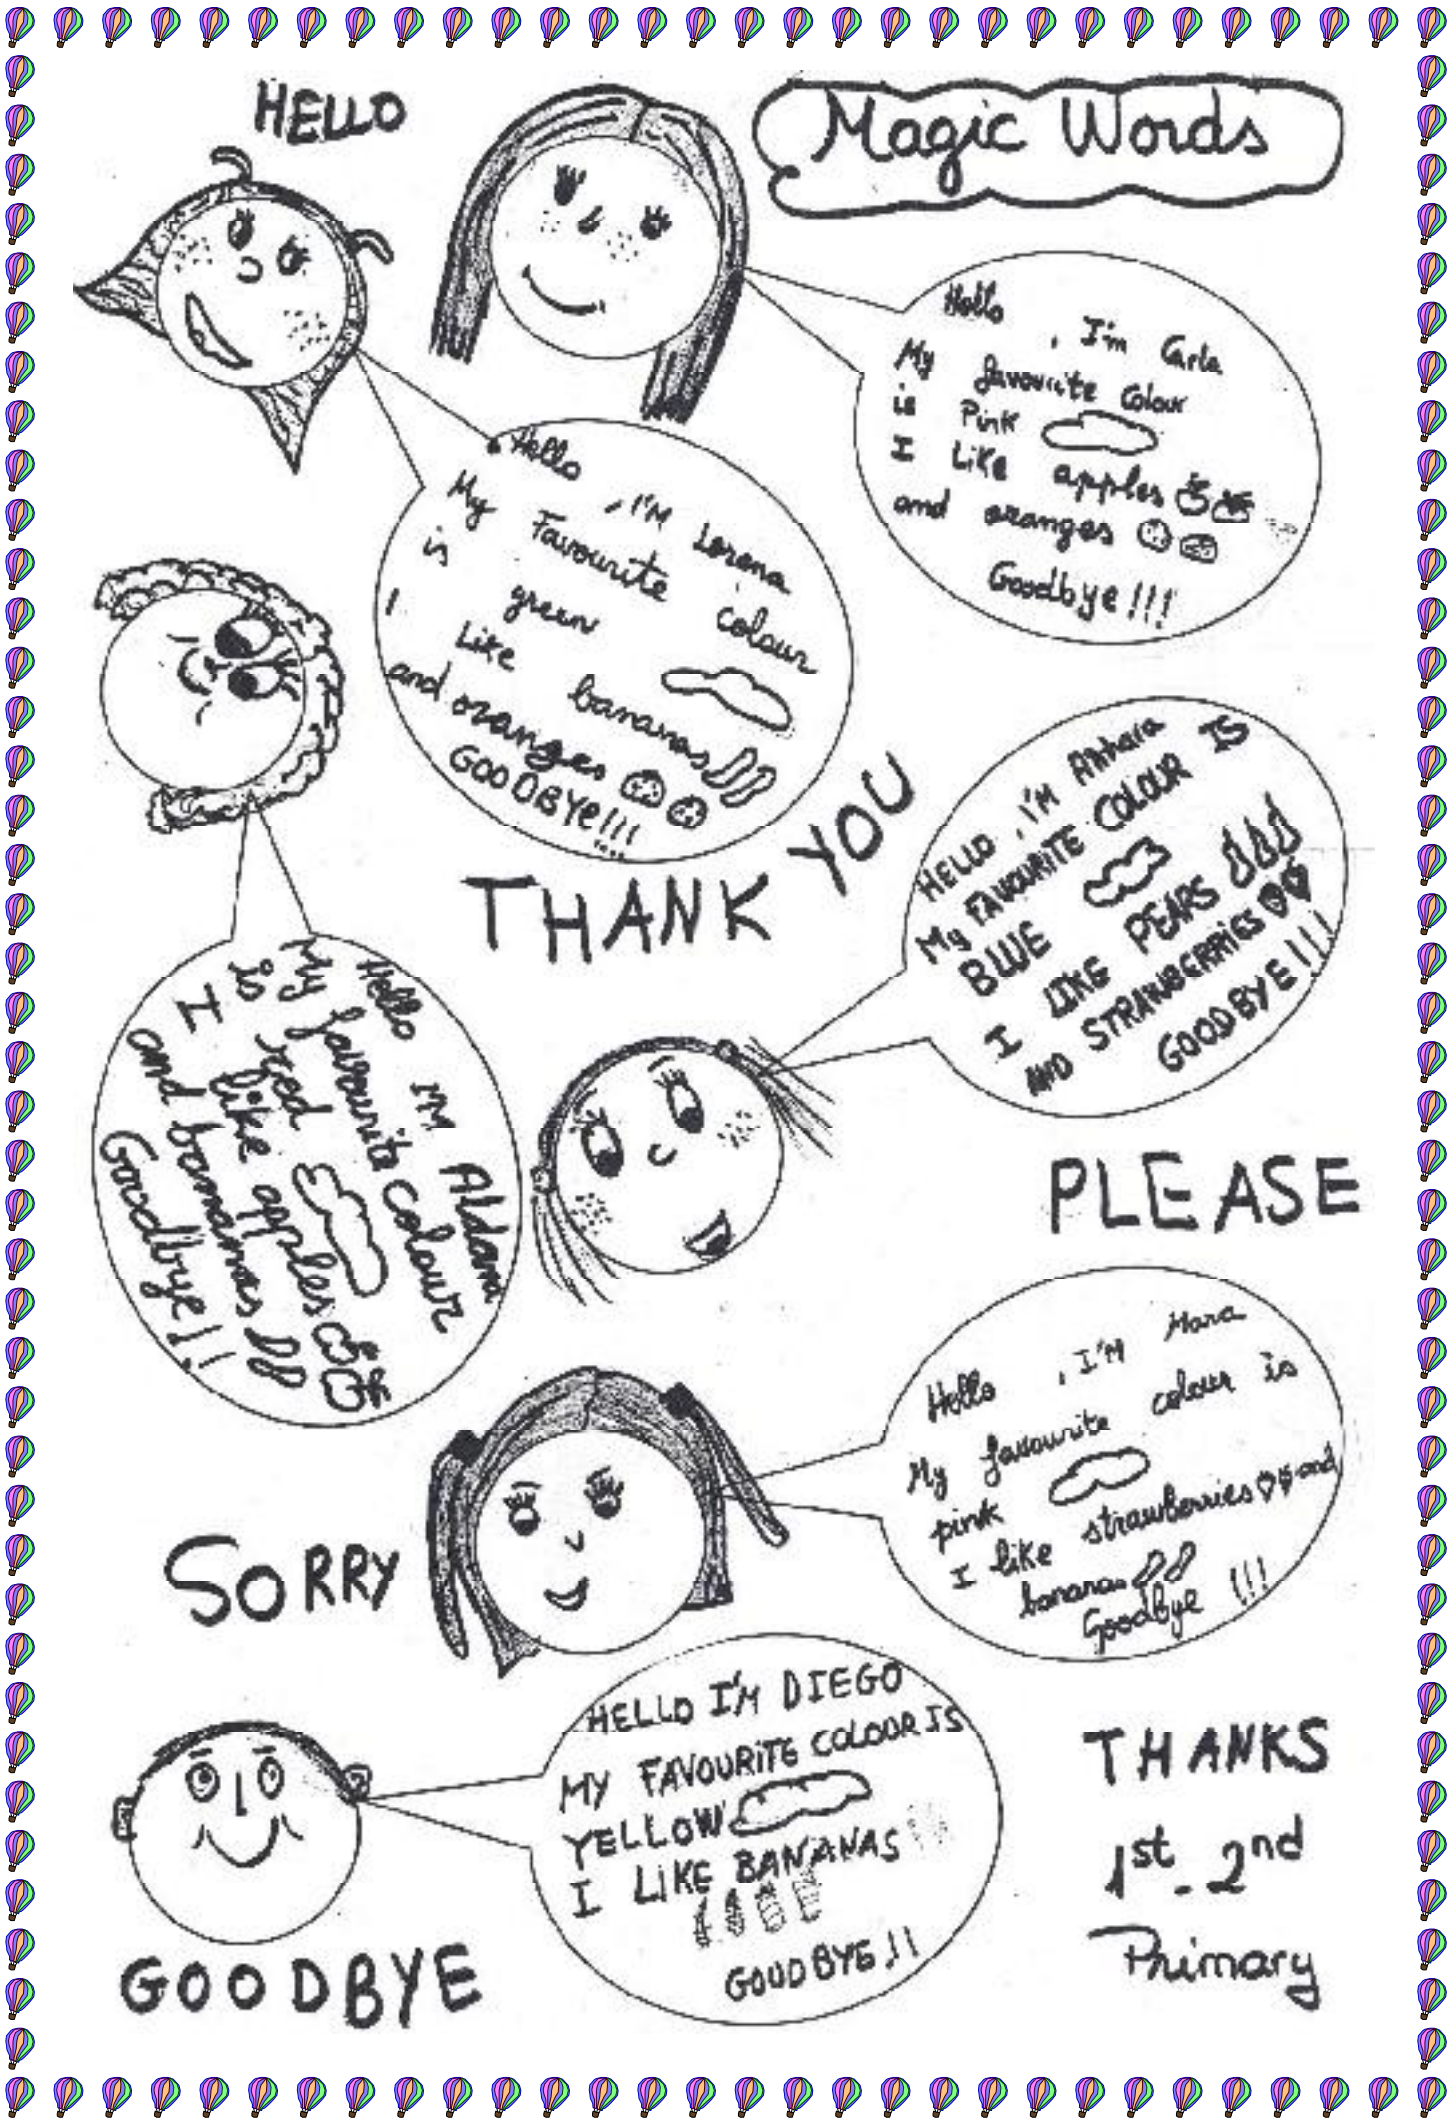 HELLO
Magic Words
Hello , I'm Carla
My favourite Colour
is Pink
I Like apples
and oranges
Goodbye!!!
Hello , I'M Lorena
My Favourite colour
is green
I Like bananas
and oranges
GOODBYE!!!
THANK YOU
HELLO , I'M Ainhara
My FAVOURITE COLOUR IS
BLUE
I LIKE PEARS
AND STRAWBERRIES
GOODBYE!!!
Hello I'M Aldana
My favourite colour
is red
I like apples
and bananas
Goodbye!!
PLEASE
Hello , I'M Mara
My favourite colour is
pink
I like strawberries and
bananas
Goodbye !!!
SORRY
HELLO I'M DIEGO
MY FAVOURITE COLOUR IS
YELLOW
I LIKE BANANAS
GOODBYE!!
GOODBYE
THANKS
1st - 2nd
Primary